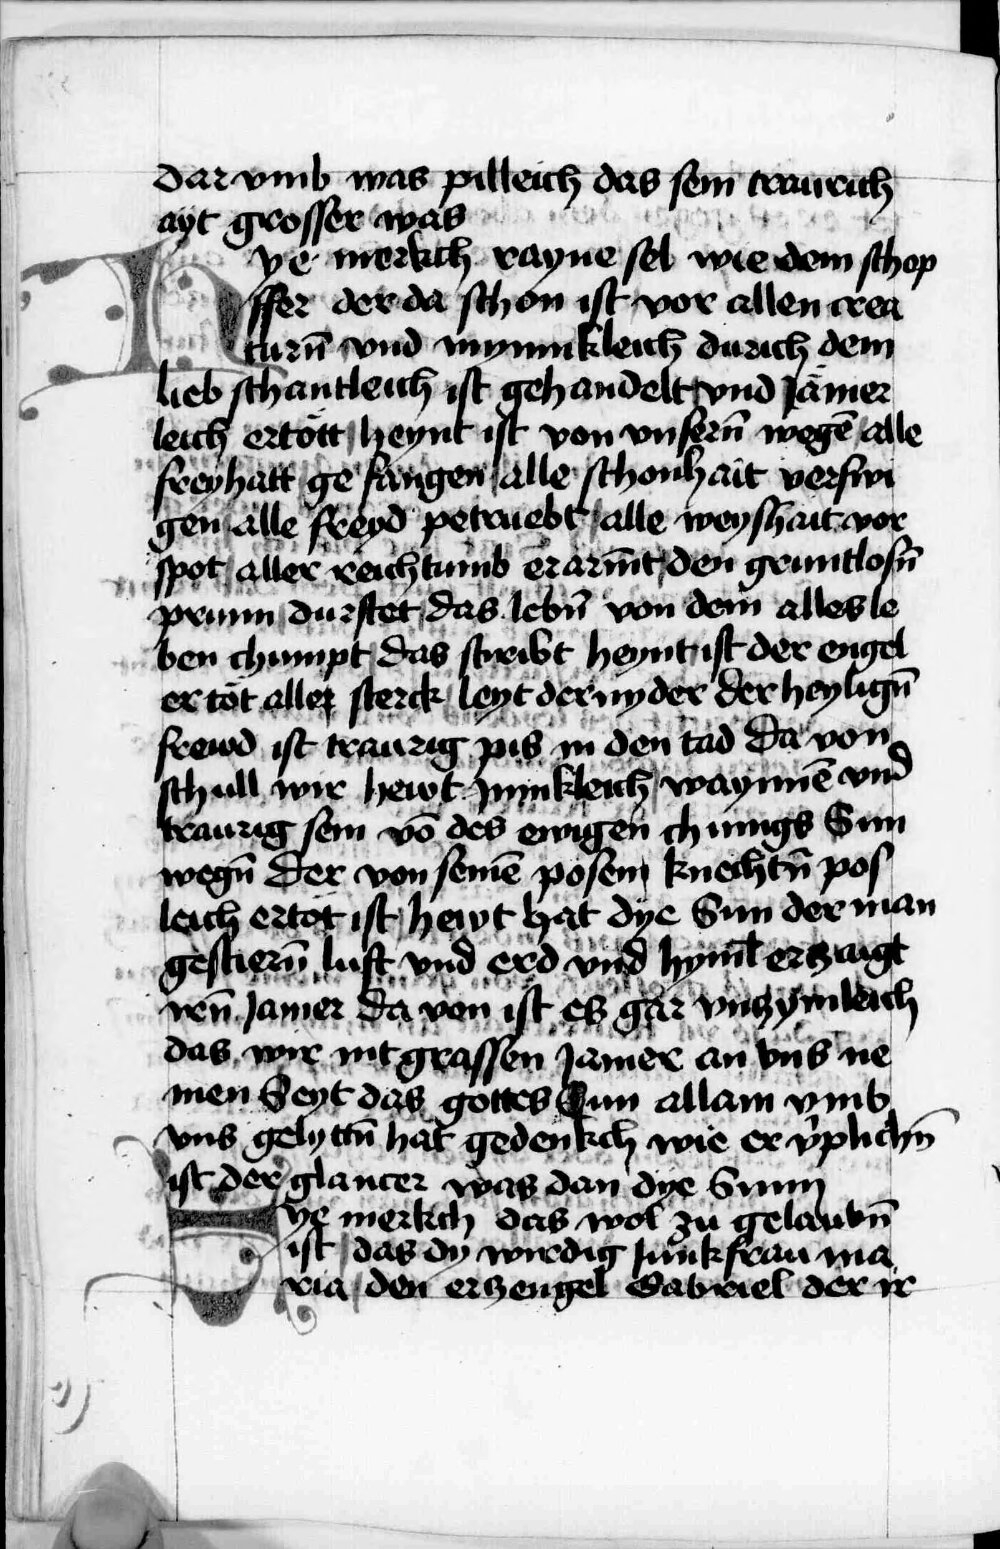 dar vmb was pilleich das sein traurich
ayt grosser was
Hye merkch rayne sel wie dem schep
ffer der da schon ist vor allen crea
turn̄ vnd mynnikleich durich dein
lieb schantleich ist gehandelt vnd Jämer
leich ertött heynt ist von vnsern̄ wegē alle
freyhatt ge fangen alle schonhait verswi
gen alle freyd petruebt alle weyshait vor
spot aller reichtumb erarm̄t den gruntlosn̄
prunn durstet das lebn̄ von dem alles le
ben chumpt das stribt heynt ist der engel
er töt aller sterck leyt der nyder der heylign̄
frewd ist traurig pis in den tad Da von
schull wir hewt Jnnikleich waynnē vnd
traurig sein vō des ewigen chunigs Sun
wegn̄ Der von seinē posem knechtn̄ pos
leich ertöt ist hewt hat dye Sun der man
gestiern̄ luft vnd erd vnd hym̄l erczaigt
ren̄ Jamer Da von ist es gar vnczymleich
das wir nit grassen Jamer an vns ne
men Seyt das gottes Sun allain vmb
vns gelyttn̄ hat gedenkch wie er v̈plichn̄
ist der glancer was dan dye Sunn
Hye merkch das wol zu gelaubn̄
ist das dy wirdig Junkfrau ma
ria den erczengel Gabriel der ir